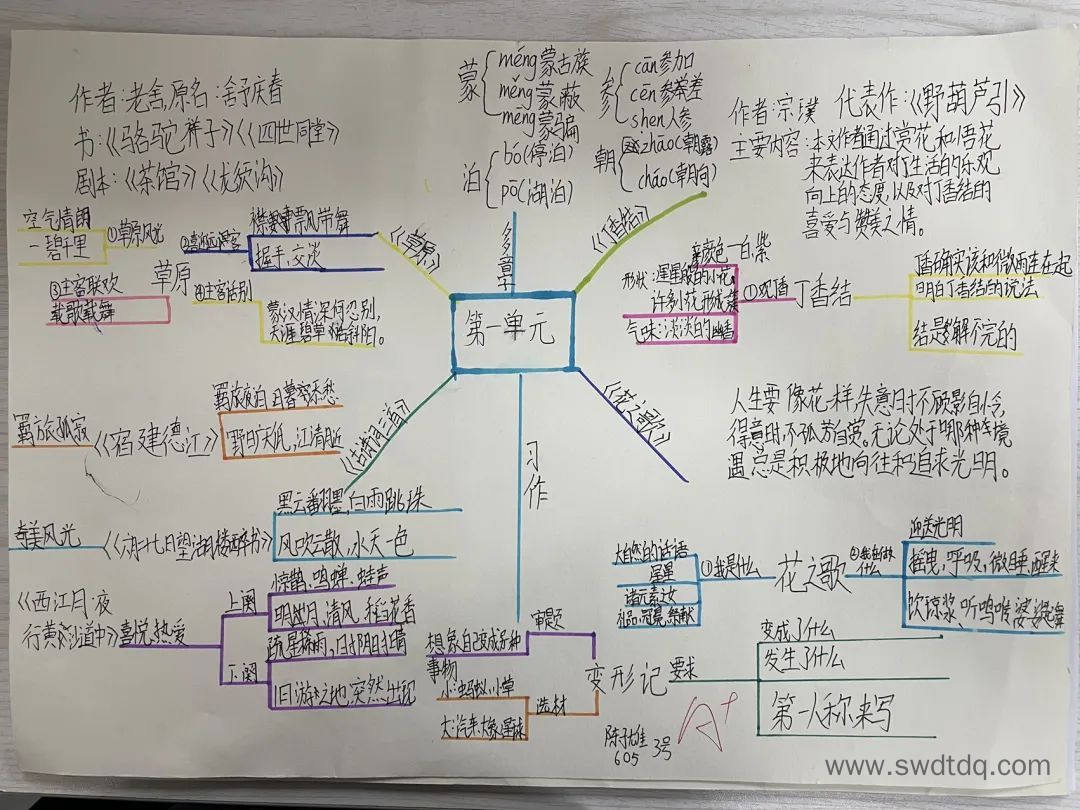 作者:老舍,原名:舒庆春
书:《骆驼祥子》《四世同堂》
剧本:《茶馆》《龙须沟》
蒙
méng蒙古族
měng蒙蔽
mēng蒙骗
泊
bó(停泊)
pō(湖泊)
参
cān参加
cēn参差
shēn人参
朝
zhāo(朝露)
cháo(朝向)
多音字
作者:宗璞 代表作:《野葫芦引》
主要内容:本文作者通过赏花和悟花
来表达作者对生活的乐观
向上的态度,以及对丁香结的
喜爱与赞美之情。
第一单元
《草原》
草原
①草原风光
空气清朗
一碧千里
襟飘带舞
握手,交谈
③主客联欢
载歌载舞
④主客话别
蒙汉情深何忍别,
天涯碧草话斜阳。
《丁香结》
丁香结
①观
颜色—白紫
形状:星星般的小花。
许多小花形成簇
气味:淡淡的幽香
确实该和微雨连在一起
明白丁香结的说法
结是解不完的
《古诗词三首》
《宿建德江》
羁旅孤寂
羁旅夜泊 日暮客愁
野旷天低,江清月近
《六月二十七日望湖楼醉书》
奇美风光
黑云翻墨,白雨跳珠
风吹云散,水天一色
《西江月·夜
行黄沙道中》
喜悦,热爱
上阕
惊鹊,鸣蝉,蛙声
明月,清风,稻花香
下阕
疏星稀雨,
旧游之地,突然出现
《花之歌》
花之歌
人生要像花一样,失意时不顾影自怜,
得意时,不孤芳自赏。无论处于哪种环境
遇,总是积极地向往和追求光明。
①我是什么
大自然的话语
星星
诸元素之女
礼品,冠冕,祭献
迎送光明
摇曳,呼吸,微睡,醒来
饮琼浆,听鸣啭,婆娑起舞
习作
变形记
审题
想象自己变成另一种
事物
选材
小:蚂蚁,小草
大:汽车,大象,星球
要求
变成了什么
发生了什么
第一人称来写
605 3号
A+
www.swdtdq.com